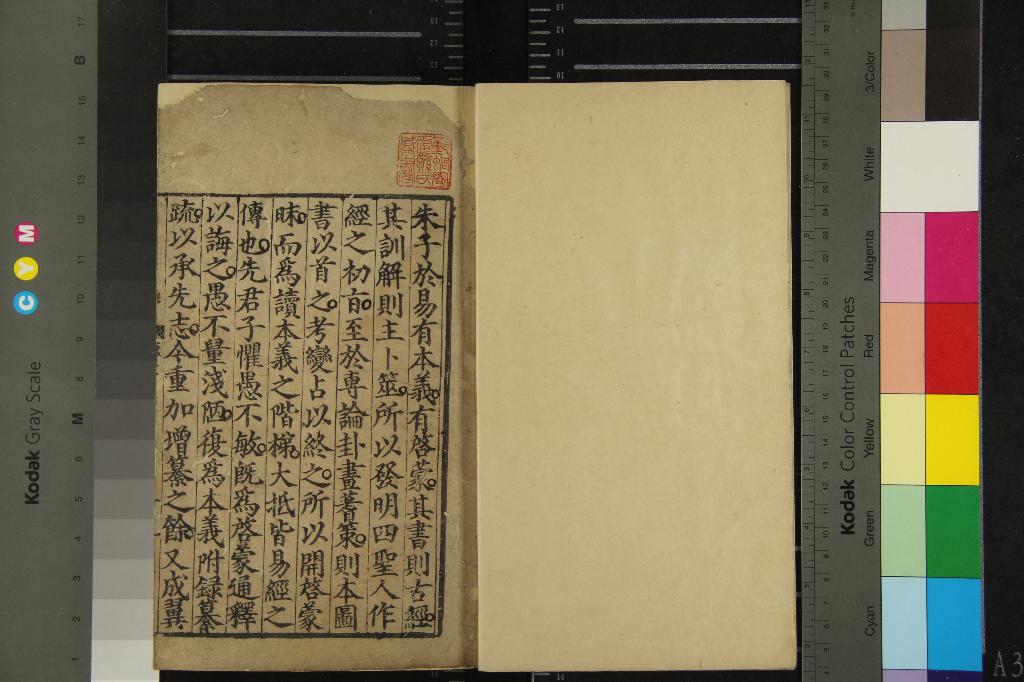 朱子於易有本義有啓蒙其書則古經
其訓解則主卜筮所以發明四聖人作
經之初㫖至於專論卦畫蓍策則本圖
書以首之考變占以終之所以開啓蒙
昧而爲讀本義之階梯大抵皆易經之
傳也先君子懼愚不敏旣爲啓蒙通釋
以誨之愚不量淺陋復爲本義附録纂
疏以承先志今重加增纂之餘又成翼
Kodak Gray Scale
C Y M
Kodak Color Control Patches
Cyan
Green
Yellow
Red
Magenta
White
3/Color
A 3